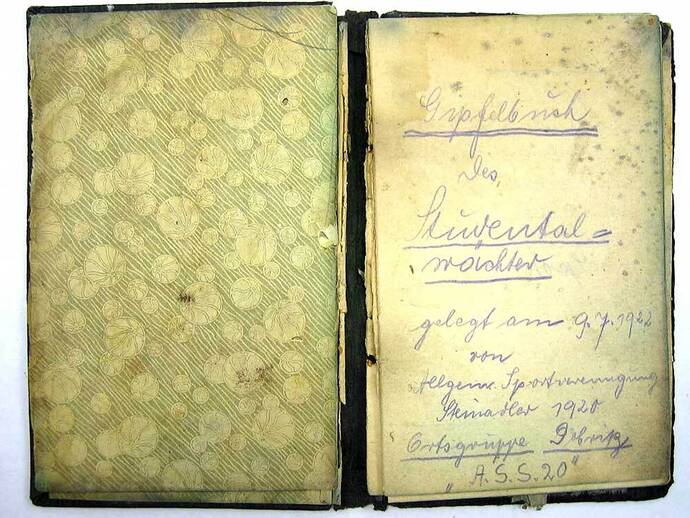 Gipfelbuch
des
Studental=
wächter
gelegt am 9.7.1922
von
Allgem. Sportvereinigung
Steinadler 1920
Ortsgruppe Dobritz
"A.S.S.20"